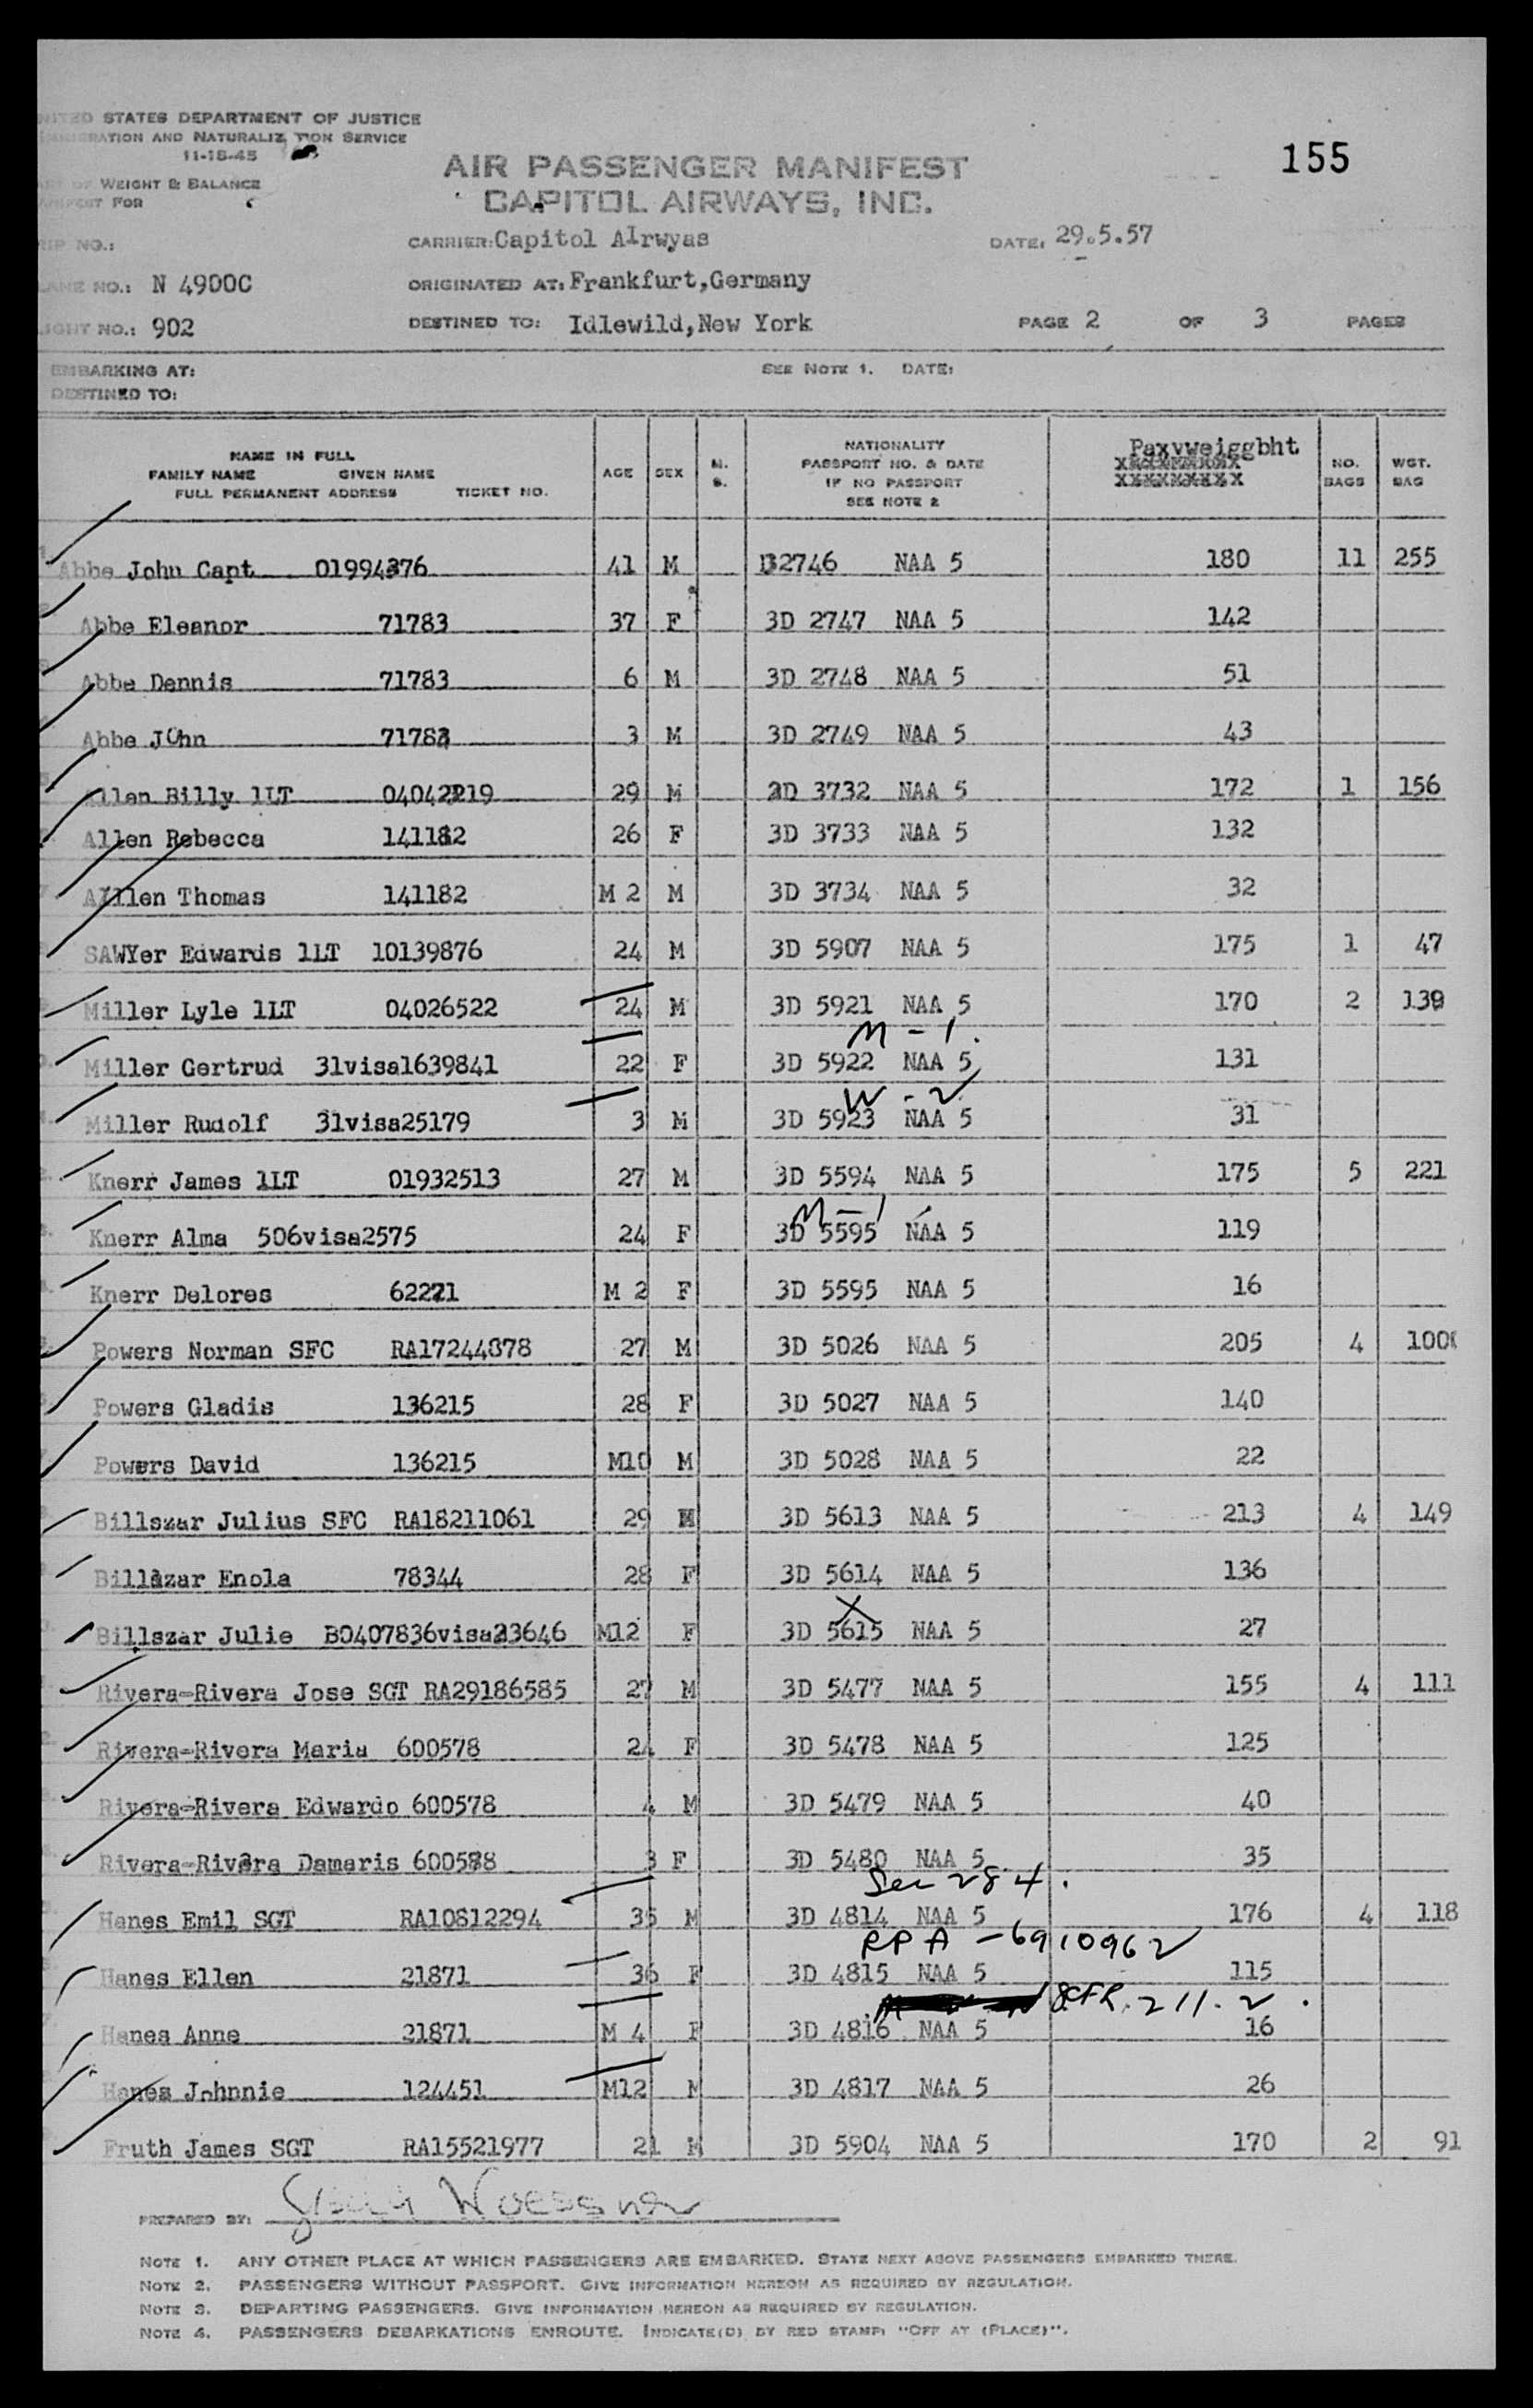 UNITED STATES DEPARTMENT OF JUSTICE
IMMIGRATION AND NATURALIZATION SERVICE
11-18-45
155
AIR PASSENGER MANIFEST
CAPITOL AIRWAYS, INC.
OF WEIGHT & BALANCE
FOR
TRIP NO.: CARRIER: Capitol AIrwyas DATE: 29.5.57
PLANE NO.: N 4900C ORIGINATED AT: Frankfurt,Germany
FLIGHT NO.: 902 DESTINED TO: Idlewild,New York PAGE 2 OF 3 PAGES
EMBARKING AT: SEE NOTE 1. DATE:
DESTINED TO:
NAME IN FULL
FAMILY NAME GIVEN NAME
FULL PERMANENT ADDRESS TICKET NO.
AGE SEX M. S.
NATIONALITY
PASSPORT NO. & DATE
IF NO PASSPORT
SEE NOTE 2
Paxvweiggbht
NO. BAGS WGT. BAG
Abbe John Capt 01994376 41 M D2746 NAA 5 180 11 255
Abbe Eleanor 71783 37 F 3D 2747 NAA 5 142
Abbe Dennis 71783 6 M 3D 2748 NAA 5 51
Abbe JOhn 71783 3 M 3D 2749 NAA 5 43
Allen Billy 1LT 04042219 29 M 3D 3732 NAA 5 172 1 156
Allen Rebecca 141182 26 F 3D 3733 NAA 5 132
Alllen Thomas 141182 M 2 M 3D 3734 NAA 5 32
SAWYer Edwards 1LT 10139876 24 M 3D 5907 NAA 5 175 1 47
Miller Lyle 1LT 04026522 24 M 3D 5921 NAA 5 170 2 139
M - 1.
Miller Gertrud 31visa1639841 22 F 3D 5922 NAA 5 131
W - 2
Miller Rudolf 31visa25179 3 M 3D 5923 NAA 5 31
Knerr James 1LT 01932513 27 M 3D 5594 NAA 5 175 5 221
M - 1
Knerr Alma 506visa2575 24 F 3D 5595 NAA 5 119
Knerr Delores 62221 M 2 F 3D 5595 NAA 5 16
Powers Norman SFC RA17244878 27 M 3D 5026 NAA 5 205 4 100
Powers Gladis 136215 28 F 3D 5027 NAA 5 140
Powers David 136215 M10 M 3D 5028 NAA 5 22
Billszar Julius SFC RA18211061 29 M 3D 5613 NAA 5 213 4 149
Billszar Enola 78344 28 F 3D 5614 NAA 5 136
X
Billszar Julie BO407836visa23646 M12 F 3D 5615 NAA 5 27
Rivera-Rivera Jose SGT RA29186585 27 M 3D 5477 NAA 5 155 4 111
Rivera-Rivera Maria 600578 24 F 3D 5478 NAA 5 125
Rivera-Rivera Edwardo 600578 4 M 3D 5479 NAA 5 40
Rivera-Rivera Damaris 600578 3 F 3D 5480 NAA 5 35
Sec 284.
Hanes Emil SGT RA10812294 35 M 3D 4814 NAA 5 176 4 118
RPA - 6910962
Hanes Ellen 21871 36 F 3D 4815 NAA 5 115
8CFR. 211.2.
Hanes Anne 21871 M 4 F 3D 4816 NAA 5 16
Hanes Johnnie 124451 M12 M 3D 4817 NAA 5 26
Fruth James SGT RA15521977 21 M 3D 5904 NAA 5 170 2 91
PREPARED BY: Woessner
NOTE 1. ANY OTHER PLACE AT WHICH PASSENGERS ARE EMBARKED. STATE NEXT ABOVE PASSENGERS EMBARKED THERE.
NOTE 2. PASSENGERS WITHOUT PASSPORT. GIVE INFORMATION HEREON AS REQUIRED BY REGULATION.
NOTE 3. DEPARTING PASSENGERS. GIVE INFORMATION HEREON AS REQUIRED BY REGULATION.
NOTE 4. PASSENGERS DEBARKATIONS ENROUTE. INDICATE(D) BY RED STAMP: "OFF AT (PLACE)".